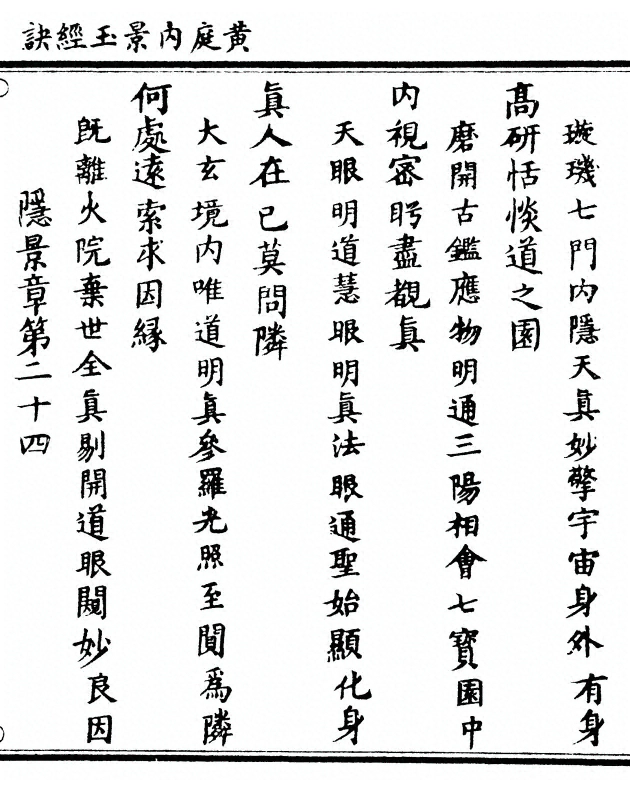 黃庭內景玉經訣
璇璣七門內隱天真妙擎宇宙身外有身
高研恬惔道之園
磨開古鑑應物明通三陽相會七寶園中
內視密盻盡覩真
天眼明道慧眼明真法眼通聖始顯化身
真人在己莫問隣
大玄境內唯道明真參羅光照至閴爲隣
何處遠索求因緣
既離火院棄世全真剔開道眼闚妙良因
隱景章第二十四